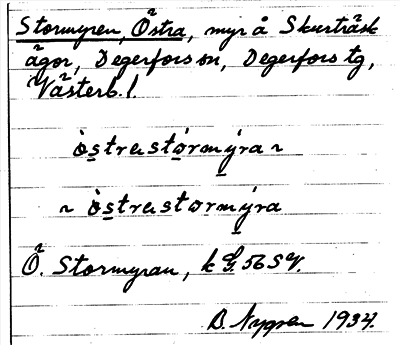 Stormyren, Östra, myr å Skurträsk
ägor, Degerfors sn, Degerfors tg,
Västerb. l.
òstrastórmýra ~
~ òstrastormýra
Ö. Stormyran, k G. 56 SV.
B. Nygren 1934.